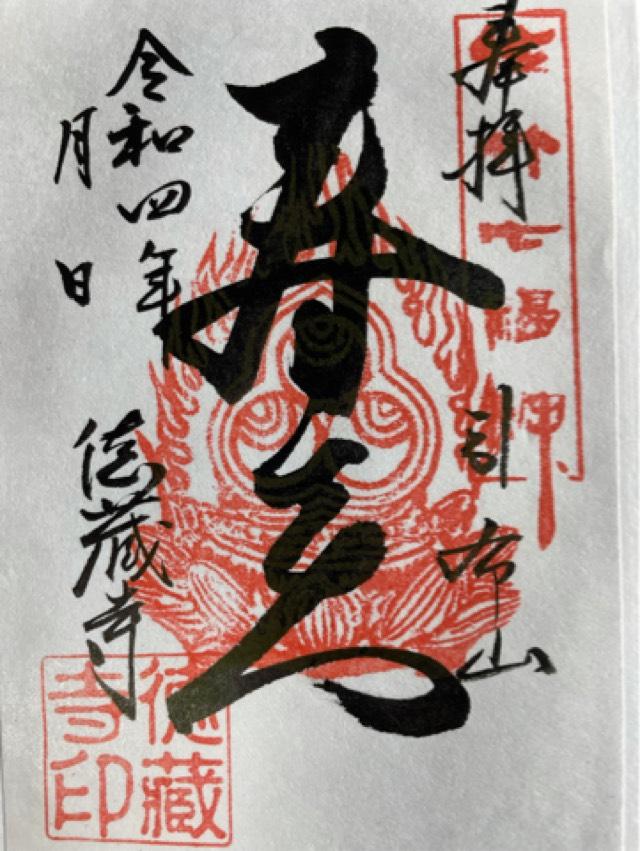 奉拝
七福神
引布山
弁天
令和四年
月 日
徳蔵寺
徳蔵
寺印